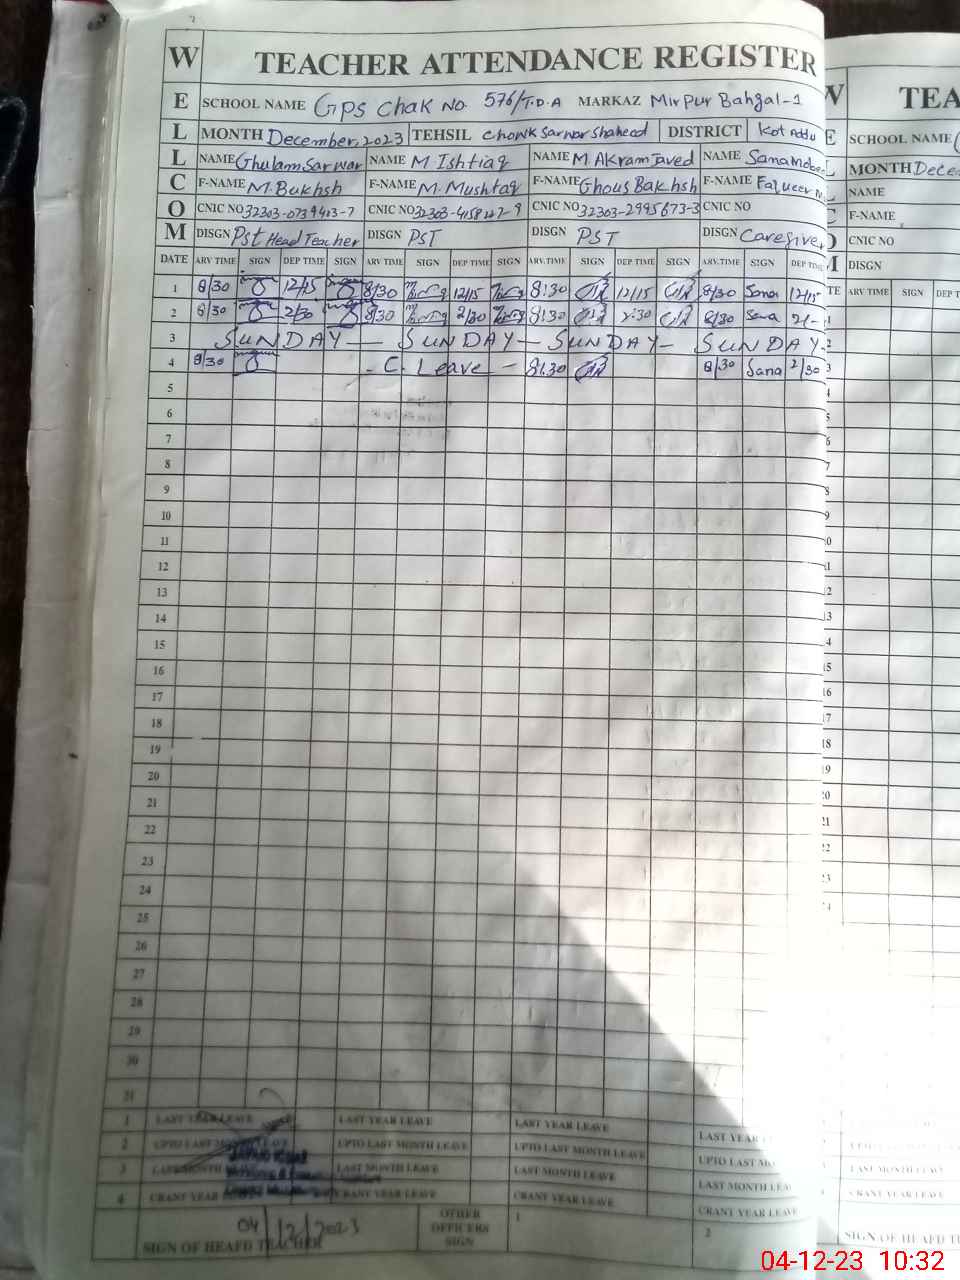 W TEACHER ATTENDANCE REGISTER
E SCHOOL NAME GPS Chak No. 576/T.D.A MARKAZ Mirpur Bahgal-1
L MONTH December, 2023 TEHSIL Chowk Sarwar Shaheed DISTRICT Kot Addu
L NAME Ghulam Sarwar NAME M Ishtiaq NAME M. Akram Javed NAME Sana
C F-NAME M. Bukhsh F-NAME M. Mushtaq F-NAME Ghous Bakhsh F-NAME Faqueer
O CNIC NO CNIC NO CNIC NO 32303-2995673-3 CNIC NO
M DISGN Pst Head Teacher DISGN PST DISGN PST DISGN Caregiver
DATE ARV TIME SIGN DEP TIME SIGN ARV TIME SIGN DEP TIME SIGN ARV.TIME SIGN DEP TIME SIGN ARV.TIME SIGN DEP TIME
1 8/30 12/15 8/30 12/15 8:30 12/15 8/30 Sana 12/15
2 8/30 2/30 8/30 2/30 8:30 2:30 8/30 Sana 2/-
3 SUNDAY — SUNDAY — SUNDAY — SUNDAY
4 8/30 - C. Leave - 8:30 8/30 Sana 2/30
5
6
7
8
9
10
11
12
13
14
15
16
17
18
19
20
21
22
23
24
25
26
27
28
29
30
31
1 LAST YEAR LEAVE LAST YEAR LEAVE LAST YEAR LEAVE LAST YEAR
2 UPTO LAST MONTH LEAVE UPTO LAST MONTH LEAVE UPTO LAST MONTH LEAVE UPTO LAST
3 LAST MONTH LAST MONTH LEAVE LAST MONTH LEAVE LAST MONTH LEAVE
4 CRANT YEAR CRANT YEAR LEAVE CRANT YEAR LEAVE CRANT YEAR LEAVE
04/12/2023
SIGN OF HEAFD TEACHER OTHER OFFICERS SIGN 1 2
W TEA
E SCHOOL NAME
MONTH Dece
NAME
F-NAME
CNIC NO
DISGN
ARV TIME SIGN DEP T
SIGN OF HEAFD
04-12-23 10:32